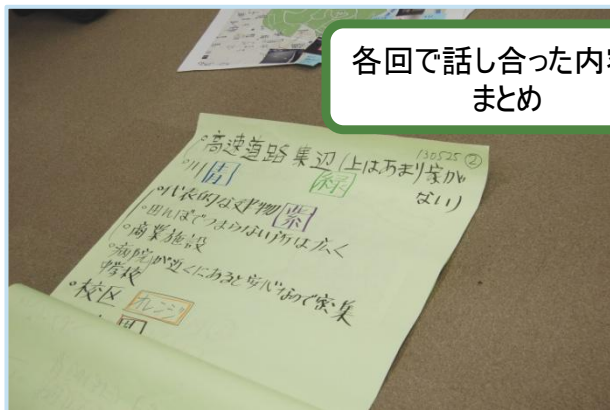 各回で話し合った内容
まとめ
130525②
・高速道路集辺(上はあまり家が
ない)
・川 青 緑
・代表的な建物 紫
・田んぼでつまらない所は広く
・商業施設
・病院が近くにあると安心なので密集
中学校
・校区 オレンジ